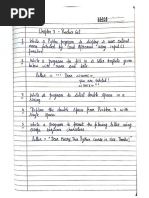 Chapter 3 - Practice Set
1. Write a Python program to display a user entered
name followed by "Good Afternoon" using input()
function
2. Write a program to fill in a letter template given
below with name and date
letter = ''' Dear <|NAME|>,
you are selected!
<|DATE|> '''
3. Write a program to detect double space in a
string
4. Replace the double space from Problem 3 with
single space
5. Write a program to format the following letter using
escape sequence characters.
letter = "Dear Harry, This Python Course is nice Thanks!"